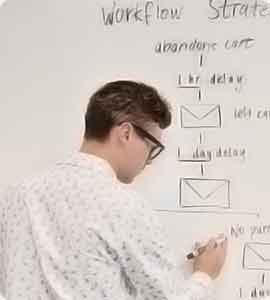 Workflow Strate
abandone cart
1 hr delay
left ca
1 day delay
No pur
1 da